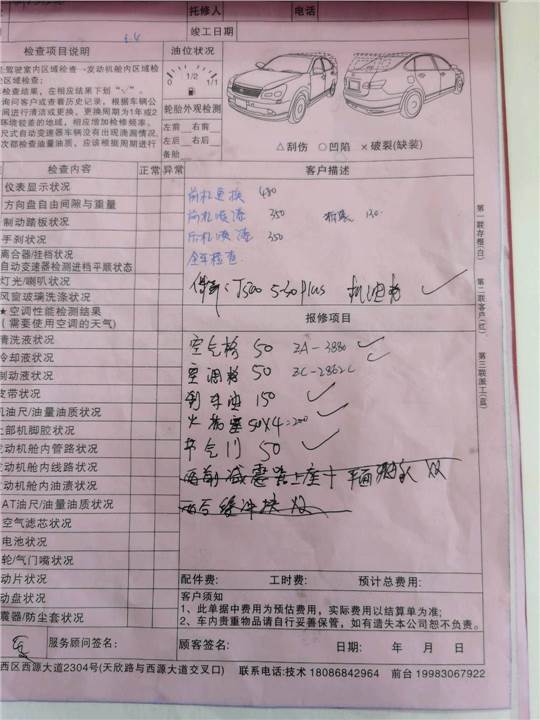 托修人 电话
竣工日期
检查项目说明 油位状况
驾驶室内区域检查→发动机舱内区域检
区域检查:
检查结果，在相应结果下划 "√"。
询问客户或查看历史记录，根据车辆公
间进行清洁或更换，更换周期为1年或2
环境较差的地域，相应增加检修频率。
尺式自动变速器车辆没有出现滴漏情况，
次都检查油量油质，应该根据周期进行
0 1/2 1/1
轮胎外观检测
左前 右前
左后 右后
备胎
△刮伤 ○凹陷 ×破裂(缺装)
检查内容 正常 异常 客户描述
仪表显示状况
方向盘自由间隙与重量
制动踏板状况
手刹状况
离合器/挂档状况
自动变速器检测进档平顺状态
灯光/喇叭状况
风窗玻璃洗涤状况
★空调性能检测结果
(需要使用空调的天气)
清洗液状况
冷却液状况
制动液状况
皮带状况
机油尺/油量油质状况
上部机脚胶状况
发动机舱内管路状况
发动机舱内线路状况
发动机舱内油渍状况
AT油尺/油量油质状况
空气滤芯状况
电池状况
轮/气门嘴状况
动片状况
动盘状况
震器/防尘套状况
前杠更换 480
前杠喷漆 350 拆装 130
后杠喷漆 350
全车检查
5-30 Plus 机油
报修项目
空气格 50 ZA-3880
空调格 50 ZC-2862C
刹车油 150
火花塞 50X4=200
节气门 50
配件费: 工时费: 预计总费用:
客户须知
1、此单据中费用为预估费用，实际费用以结算单为准;
2、车内贵重物品请自行妥善保管，如有遗失本公司恕不负责。
服务顾问签名: 顾客签名: 日期: 年 月 日
西区西源大道2304号(天欣路与西源大道交叉口) 联系电话:技术 18086842964 前台 19983067922
第一联存根(白)
第二联客户(红)
第三联派工(蓝)